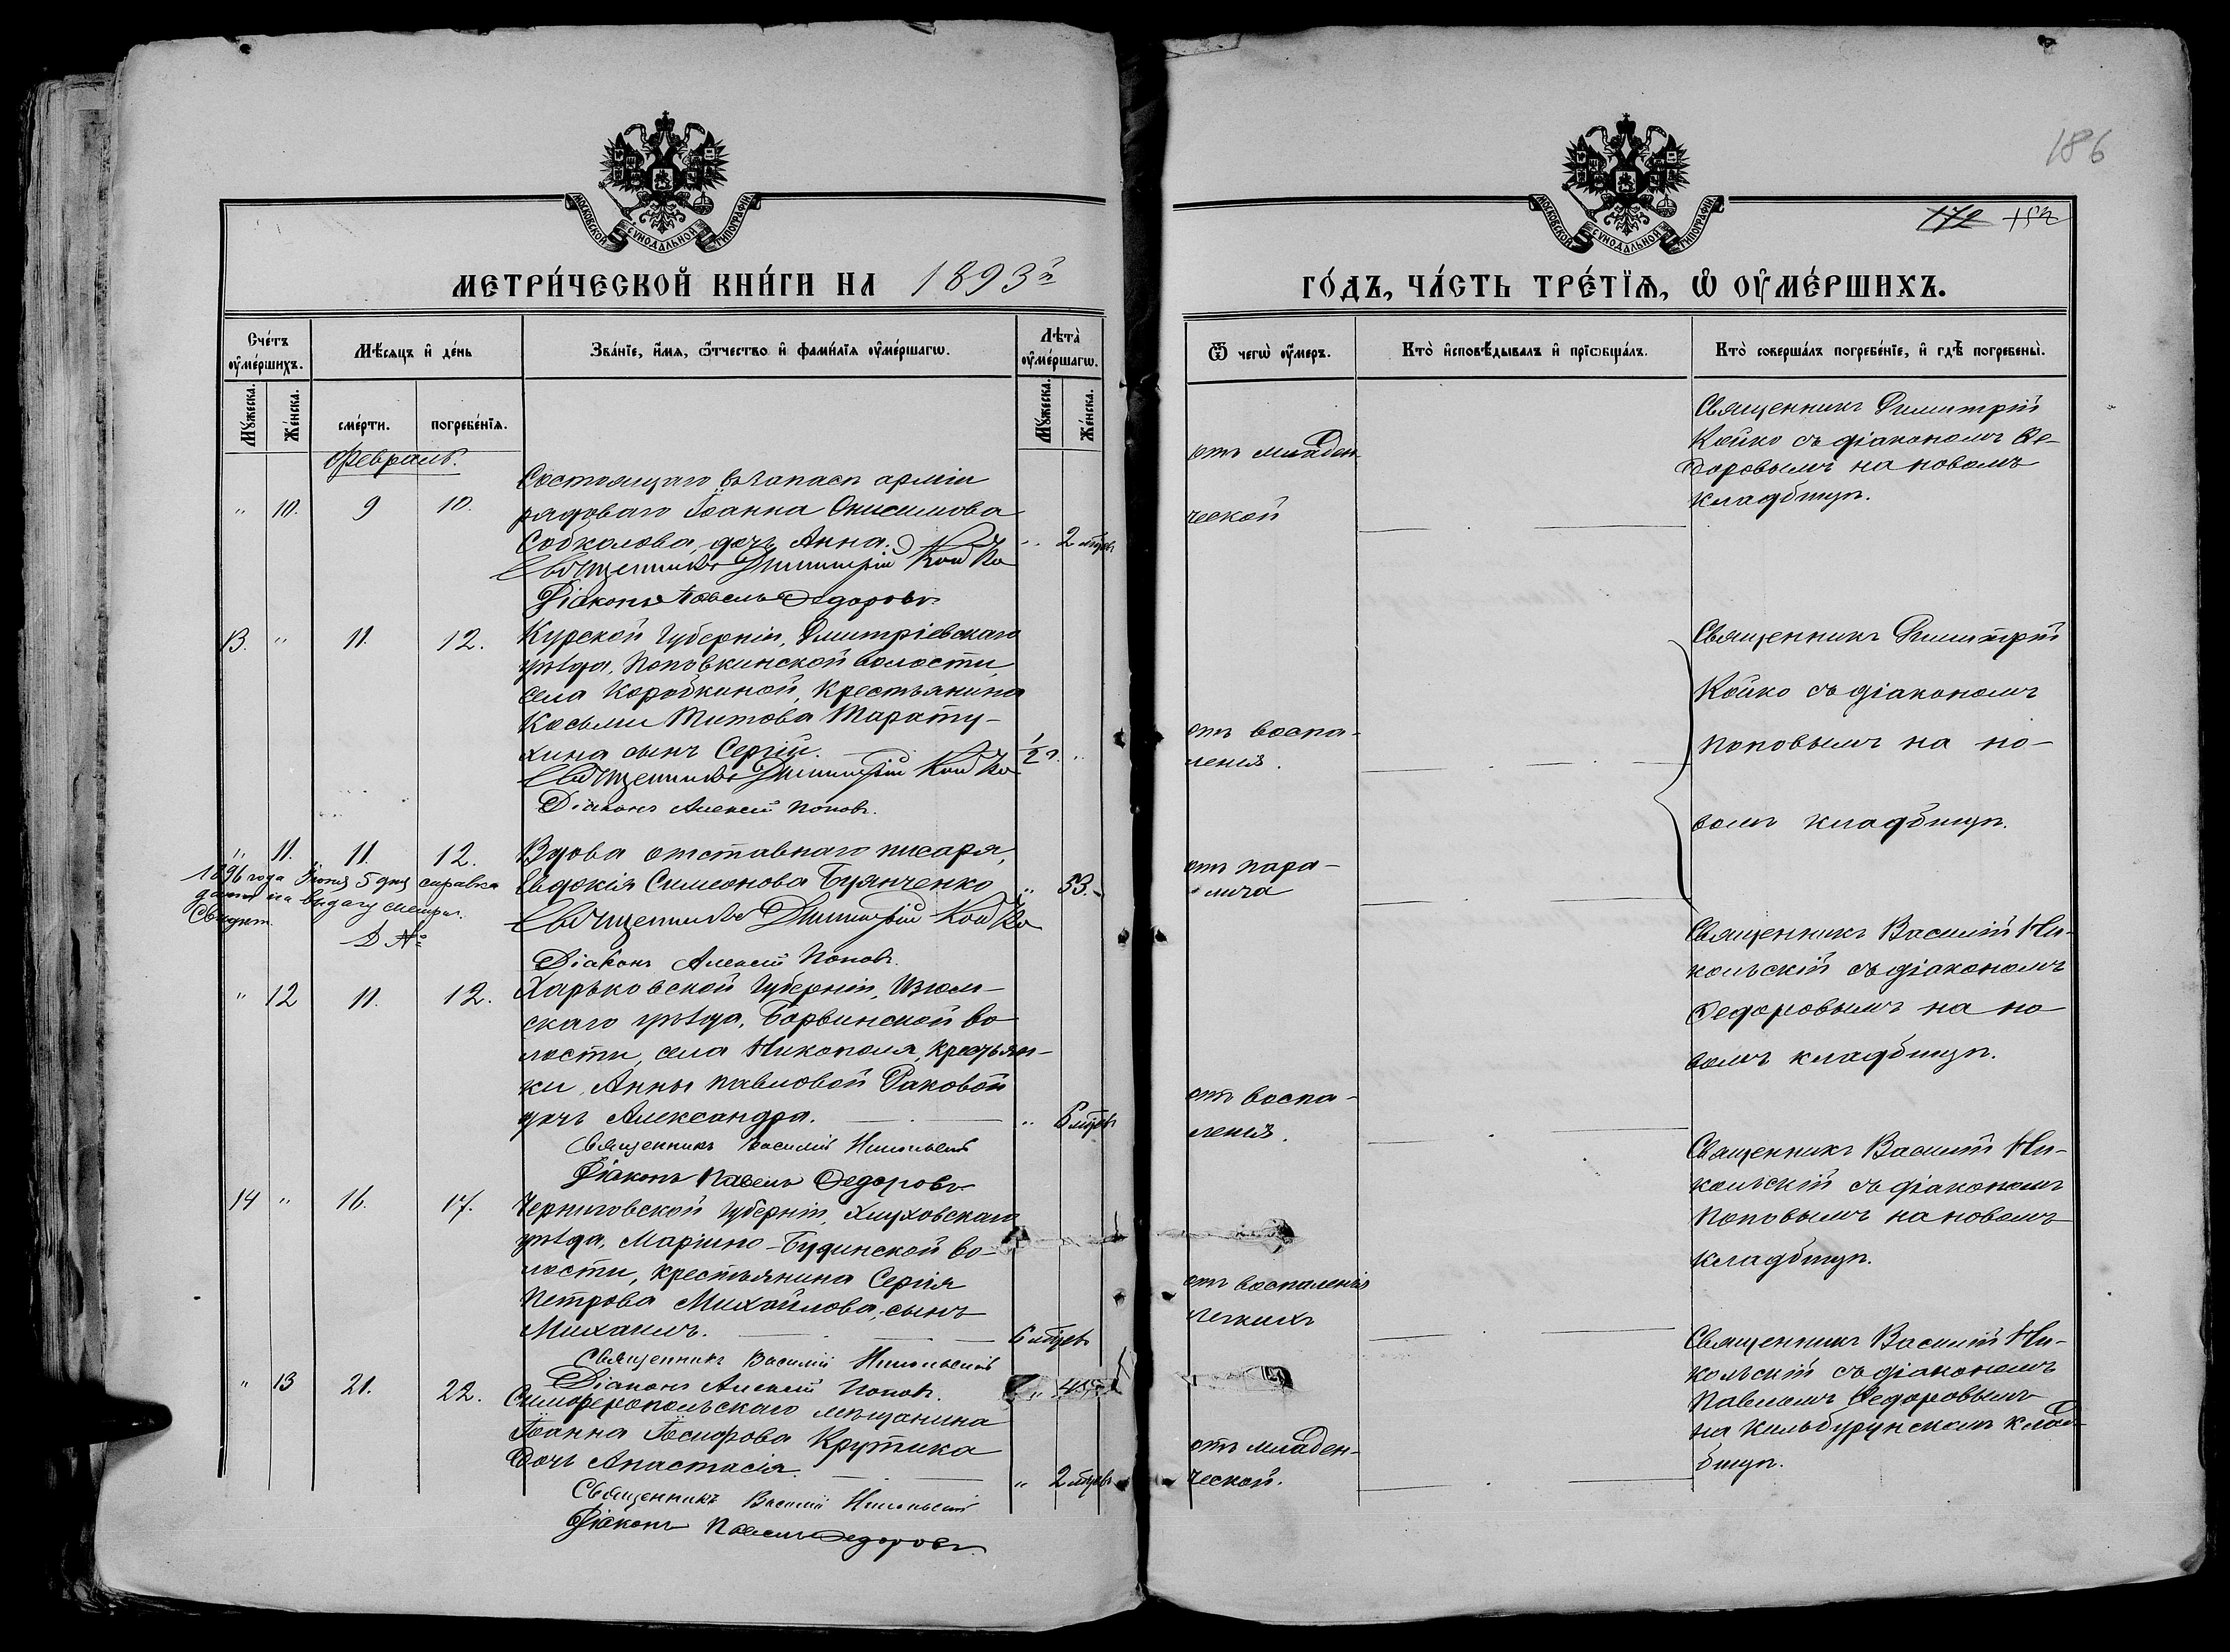 МОСКОВСКОЙ СУНОДАЛЬНОЙ ТИПОГРАФІИ
МЕТРИ́ЧЕСКОЙ КНИ́ГИ НА 1893й
Сче́тъ оу҆ме́ршихъ.
Мѣ́сяцъ и҆ де́нь
Зва́нїе, и҆́мя, ѿтчество и҆ фами́лїя оу҆ме́ршагѡ.
Лѣта̀ оу҆ме́ршагѡ.
Му́жеска.
Же́нска.
сме́рти.
погребе́нїя.
Му́жеска.
Же́нска.
Февраль.
Состоящаго въ запасѣ арміи
" 10. 9 10. рядоваго Іоанна Онисимова
Соболова, дочь Анна. " 2 мѣсц.
Священникъ Димитрій Койко
Діаконъ Павелъ Федоровъ
13. " 11. 12. Курской Губерніи, Дмитріевскаго
уѣзда, Поповкинской волости,
села Коробкиной, Крестьянина
Косьмы Титова Тарату-
хина сынъ Сергій. 1/2 г. "
Священникъ Димитрій Койко
Діаконъ Алексій Поповъ.
" 11. 11. 12. Вдова отставнаго писаря,
Евдокія Симеонова Буянченко " 53.
1896 года Іюня 5 дня справка
дана на выдачу метрич.
Свидѣт.
Д №
Священникъ Димитрій Койко
Діаконъ Алексій Поповъ.
" 12 11. 12. Харьковской Губерніи, Изюм-
скаго уѣзда, Барвинской во
лости, села Никополя, крестьян-
ки, Анны Павловой Раковой
дочь Александра. " 6 мѣсц.
Священникъ Василій Никольскій
Діаконъ Павелъ Федоровъ
14 " 16. 17. Черниговской Губерніи, Глуховскаго
уѣзда, Маріино-Будинской во-
лости, крестьянина Сергія
Петрова Михайлова, сынъ
Михаилъ. 6 мѣсц.
Священникъ Василій Никольскій
Діаконъ Алексій Поповъ.
" 13 21. 22. Симферопольскаго мѣщанина
Іоанна Іосифова Крутика
дочь Анастасія. " 2 мѣсц.
Священникъ Василій Никольскій
Діаконъ Павелъ Федоровъ
186
172
МОСКОВСКОЙ СУНОДАЛЬНОЙ ТИПОГРАФІИ
ГО́ДЪ, ЧА́СТЬ ТРЕ́ТЇЯ, Ѡ҆ ОУ҆МЕ́РШИХЪ.
Ѿ чегѡ̀ оу҆́меръ.
Кто̀ и҆сповѣ́дывалъ и҆ прїѡбща́лъ.
Кто̀ соверша́лъ погребе́нїе, и҆ гдѣ̀ погребены̀.
отъ младен
ческой
Священникъ Димитрій
Койко съ діакономъ Фе-
доровымъ на новомъ
кладбищѣ.
отъ воспа-
ленія.
Священникъ Димитрій
Койко съ діакономъ
Поповымъ на но-
вомъ кладбищѣ.
отъ пара-
лича
отъ воспа-
ленія.
Священникъ Василій Ни-
кольскій съ діакономъ
Федоровымъ на но
вомъ кладбищѣ.
отъ воспаленія
легкихъ
Священникъ Василій Ни-
кольскій съ діакономъ
Поповымъ на новомъ
кладбищѣ.
отъ младен-
ческой.
Священникъ Василій Ни-
кольскій съ діакономъ
Павломъ Федоровымъ
на Кильбурунскомъ клад-
бищѣ.